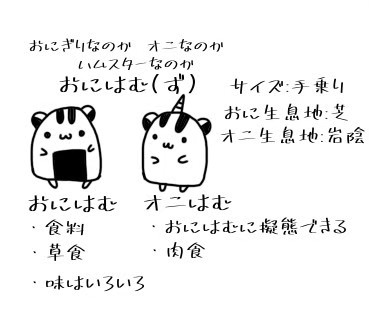 おにぎりなのか オニなのか
ハムスターなのか
おにはむ(ず)
サイズ:手乗り
おに生息地:芝
オニ生息地:岩陰
おにはむ
・食料
・草食
・味はいろいろ
オニはむ
・おにはむに擬態できる
・肉食